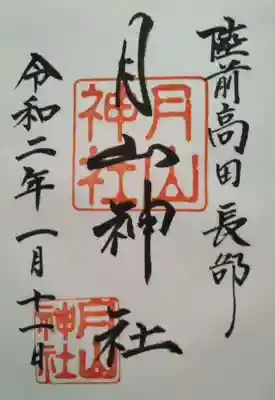 陸前高田 長部
月山神社
月山神社
令和二年一月十一日
月山神社